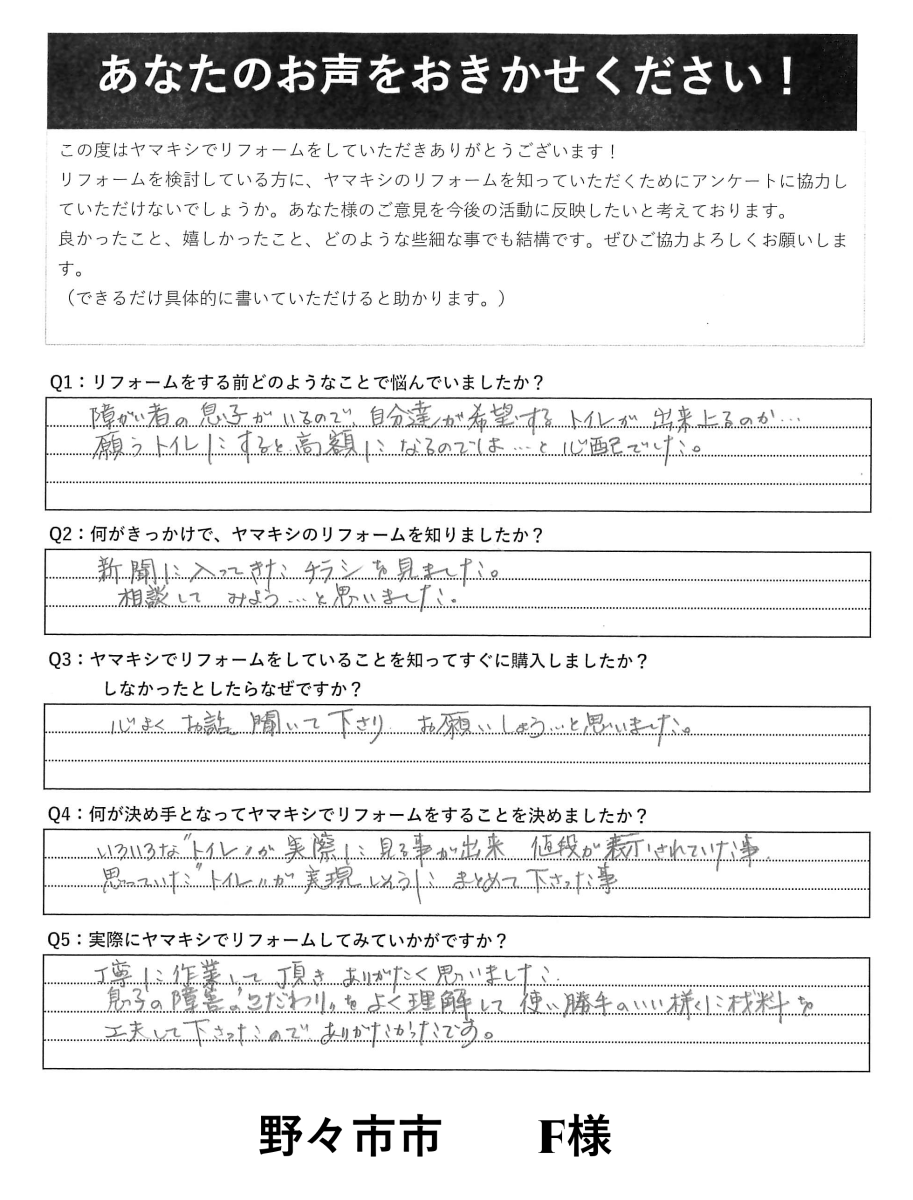 あなたのお声をおきかせください！
この度はヤマキシでリフォームをしていただきありがとうございます！
リフォームを検討している方に、ヤマキシのリフォームを知っていただくためにアンケートに協力し
ていただけないでしょうか。あなた様のご意見を今後の活動に反映したいと考えております。
良かったこと、嬉しかったこと、どのような些細な事でも結構です。ぜひご協力よろしくお願いしま
す。
（できるだけ具体的に書いていただけると助かります。）
Q1：リフォームをする前どのようなことで悩んでいましたか？
障がい者の息子がいるので、自分達が希望するトイレが出来上るのか…
願うトイレにすると高額になるのでは…と心配でした。
Q2：何がきっかけで、ヤマキシのリフォームを知りましたか？
新聞に入ってきたチラシを見ました。
相談してみよう…と思いました。
Q3：ヤマキシでリフォームをしていることを知ってすぐに購入しましたか？
しなかったとしたらなぜですか？
心よくお話聞いて下さり お願いしよう…と思いました。
Q4：何が決め手となってヤマキシでリフォームをすることを決めましたか？
いろいろな"トイレ"が実際に見る事が出来 値段が表示されていた事、
思っていた"トイレ"が実現しそうにまとめて下さった事
Q5：実際にヤマキシでリフォームしてみていかがですか？
丁寧に作業して頂きありがたく思いました。
息子の障害"こだわり"をよく理解して使い勝手のいい様に材料を
工夫して下さったので、ありがたかったです。
野々市市 F様